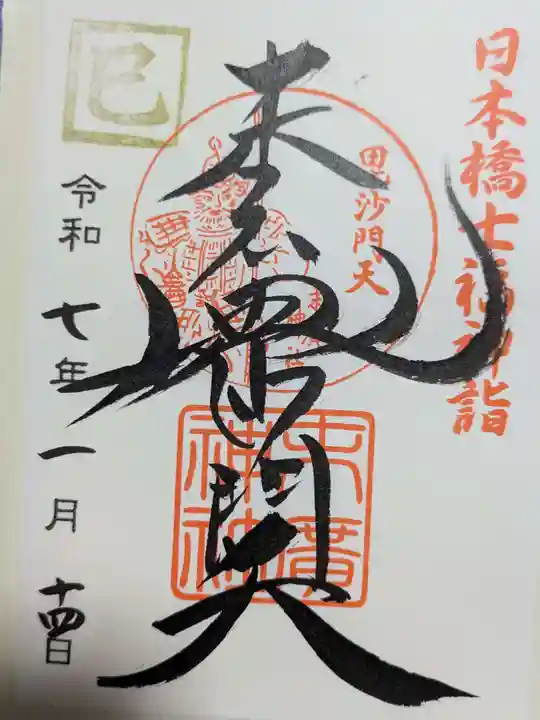 日本橋七福神詣
毘沙門天
毘沙門天
末廣神社
巳
令和七年一月十四日